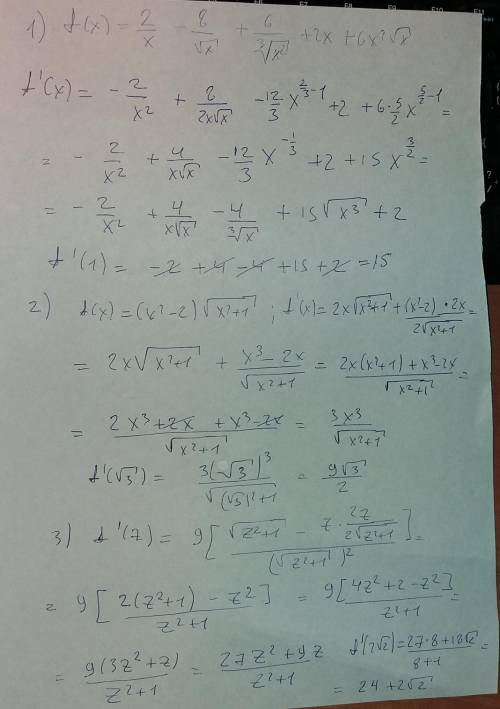 1) f(x) = 2/x - 8/√x + 6/∛x² + 2x + 6x²√x
f'(x) = - 2/x² + 8/(2x√x) - 12/3 x^(2/3-1) + 2 + 6·5/2 x^(5/2-1) =
= - 2/x² + 4/(x√x) - 12/3 x^(-1/3) + 2 + 15 x^(3/2) =
= - 2/x² + 4/(x√x) - 4/∛x + 15√x³ + 2
f'(1) = -2 + 4 - 4 + 15 + 2 = 15
2) f(x) = (x²-2) √(x²+1) ; f'(x) = 2x√(x²+1) + (x²-2)·2x/(2√(x²+1)) =
= 2x√(x²+1) + (x³-2x)/√(x²+1) = (2x(x²+1) + x³-2x)/√(x²+1) =
= (2x³+2x + x³-2x)/√(x²+1) = 3x³/√(x²+1)
f'(√3) = 3(√3)³/√((√3)²+1) = 9√3/2
3) f'(z) = 9[(√(z²+1) - z·2z/(2√(z²+1)))/(√(z²+1))²] =
= 9[(2(z²+1) - z²)/(z²+1)] = 9[4z²+2-z²]/(z²+1) =
= 9(3z²+z)/(z²+1) = (27z²+9z)/(z²+1) f'(2√2) = (27·8+18√2)/(8+1) =
= 24+2√2